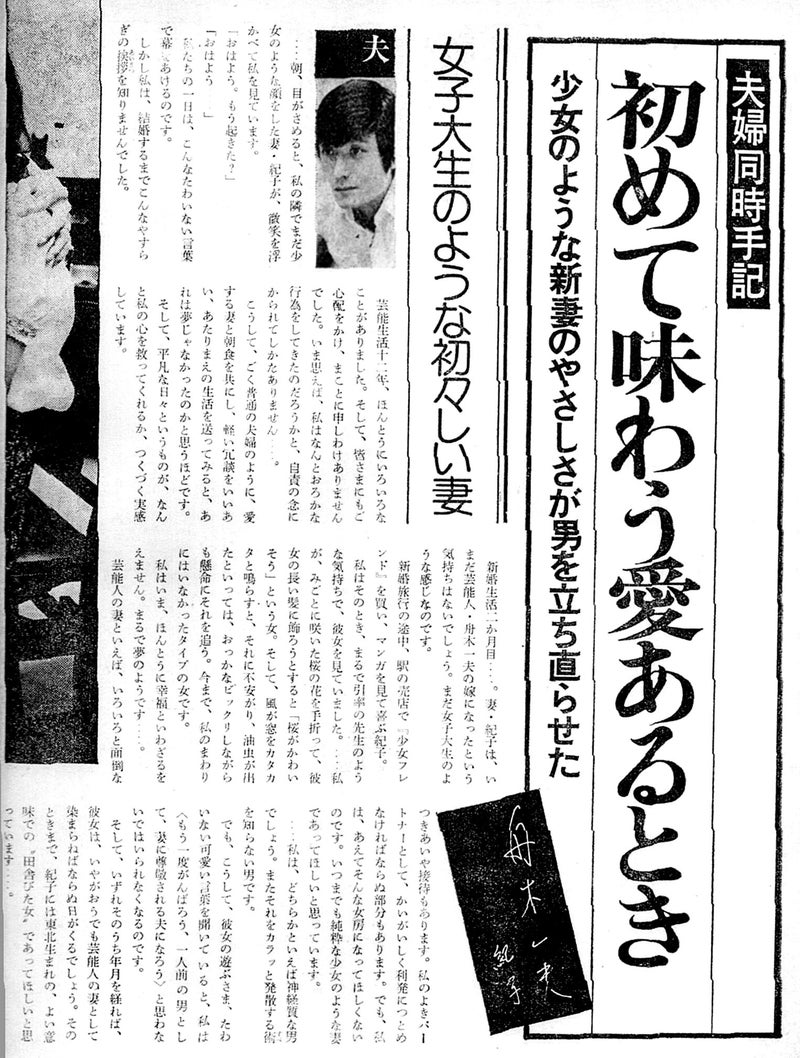 夫婦同時手記
初めて味わう愛あるとき
少女のような新妻のやさしさが男を立ち直らせた
女子大生のような初々しい妻
夫
……朝、目がさめると、私の隣でまだ少
女のような顔をした妻・紀子が、微笑を浮
かべて私を見ています。
「おはよう。もう起きた？」
「おはよう……」
私たちの一日は、こんなたわいない言葉
で幕であけるのです。
しかし私は、結婚するまでこんなやすら
ぎの挨拶を知りませんでした。
芸能生活十二年、ほんとうにいろいろな
ことがありました。そして、皆さまにもご
心配をかけ、まことに申しわけありません
でした。いま思えば、私はなんとおろかな
行為をしてきたのだろうかと、自責の念に
かられてしかたありません……。
こうして、ごく普通の夫婦のように、愛
する妻と朝食を共にし、軽い冗談をいいあ
い、あたりまえの生活を送ってみると、あ
れは夢じゃなかったのかと思うほどです。
そして、平凡な日々というものが、なん
と私の心を救ってくれるか、つくづく実感
しています。
新婚生活二か月目……。妻・紀子は、い
まだ芸能人・舟木一夫の嫁になったという
気持ちはないでしょう。まだ女子大生のよ
うな感じなのです。
新婚旅行の途中、駅の売店で『少女フレ
ンド』を買い、マンガを見て喜ぶ紀子。
私はそのとき、まるで引率の先生のよう
な気持ちで、彼女を見ていました。……私
が、みごとに咲いた桜の花を手折って、彼
女の長い髪に飾ろうとすると「桜がかわい
そう」という女。そして、風が窓をカタカ
タと鳴らすと、それに不安がり、油虫が出
たといっては、おっかなビックリしながら
も懸命にそれを追う。今まで、私のまわり
にはいなかったタイプの女です。
私はいま、ほんとうに幸福といわざるを
えません。まるで夢のようです……。
芸能人の妻といえば、いろいろと面倒な
つきあいや接待もあります。私のよきパー
トナーとして、かいがいしく利発につとめ
なければならぬ部分もあります。でも、私
は、あえてそんな女房になってほしくない
のです。いつまでも純粋な少女のような妻
であってほしいと思っています。
……私は、どちらかといえば神経質な男
でしょう。またそれをカラッと発散する術
を知らない男です。
でも、こうして、彼女の遊ぶさま、たわ
いない可愛い言葉を聞いていると、私は
〈もう一度がんばろう、一人前の男とし
て、妻に尊敬される夫になろう〉と思わな
いではいられなくなるのです。
そして、いずれそのうち年月を経れば、
彼女は、いやがおうでも芸能人の妻として
染まらねばならぬ日がくるでしょう。その
ときまで、紀子には東北生まれの、よい意
味での“田舎びた女”であってほしいと思
っています……。
舟木一夫
紀子